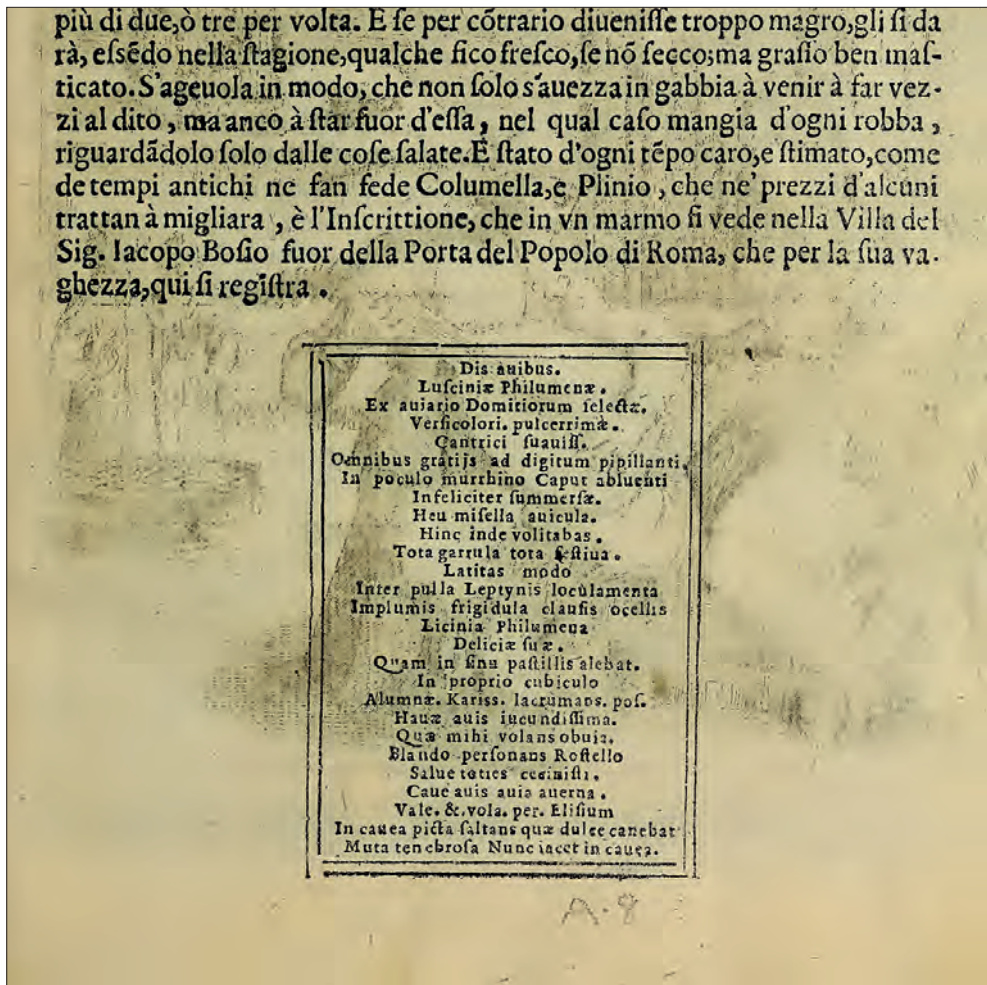 più di due,ò tre per volta. E ſe per cõtrario diueniſſe troppo magro,gli ſi da
rà, eſsēdo nella ſtagione,qualche fico freſco,ſe nõ ſecco;ma graſſo ben maſ-
ticato. S'ageuola in modo, che non ſolo s'auezza in gabbia à venir à far vez-
zi al dito, ma anco à ſtar fuor d'eſſa, nel qual caſo mangia d'ogni robba,
riguardādolo ſolo dalle coſe ſalate. E ſtato d'ogni tēpo caro,e ſtimato,come
de tempi antichi ne fan fede Columella,e Plinio, che ne' prezzi d'alcuni
trattan à migliara, è l'Inſcrittione, che in vn marmo ſi vede nella Villa del
Sig. Iacopo Boſio fuor della Porta del Popolo di Roma, che per la ſua va-
ghezza,qui ſi regiſtra.
Dis auibus.
Luſciniæ Philumenæ.
Ex auiario Domitiorum ſelectæ.
Verſicolori. pulcerrimæ.
Cantrici ſuauiſſ.
Omnibus gratijs ad digitum pipillanti,
In poculo murrhino Caput abluenti
Infeliciter ſummerſæ.
Heu miſella auicula.
Hinc inde volitabas.
Tota garrula tota feſtiua.
Latitas modo
Inter pulla Leptynis loculamenta
Implumis frigidula clauſis ocellis
Licinia Philumena
Deliciæ ſuæ.
Quam in ſinu paſtillis alebat.
In proprio cubiculo
Alumnæ. Kariss. lacrumans. poſ.
Hauæ auis iucundiſſima.
Quæ mihi volans obuia.
Blando perſonans Roſtello
Salue toties ceciniſti.
Caue auis auia auerna.
Vale. &. vola. per. Eliſium
In cauea picta ſaltans quæ dulce canebat
Muta tenebroſa Nunc iacet in cauea.
A.8